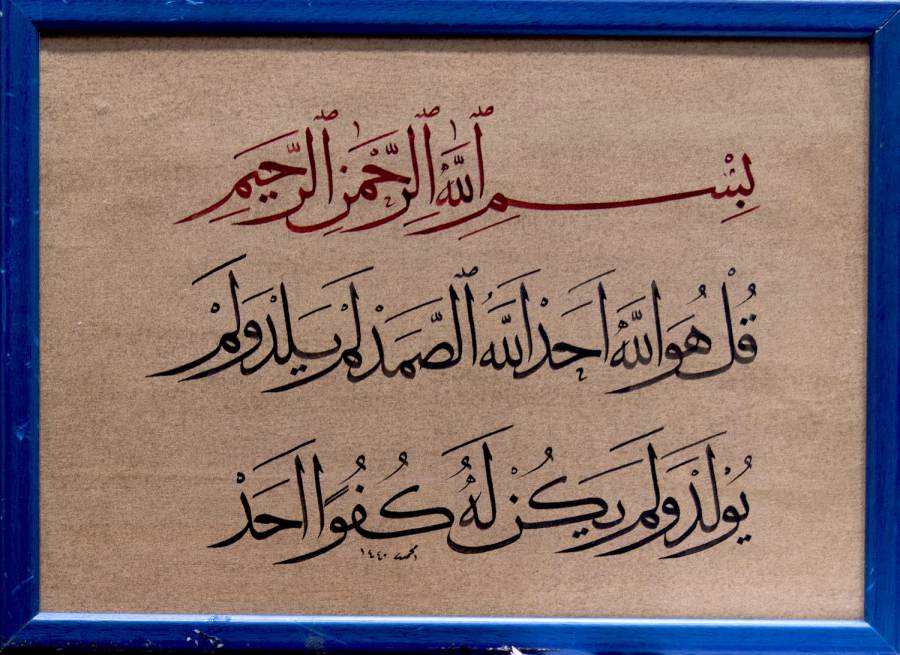 بِسْمِ ٱللَّهِ ٱلرَّحْمٰنِ ٱلرَّحِيمِ
قُلْ هُوَ اللَّهُ اَحَدْ اَللَّهُ ٱلصَّمَدْ لَمْ يَلِدْ وَلَمْ
يُوْلَدْ وَلَمْ يَكُنْ لَهُ كُفُوًا اَحَدْ
١٤٤٠